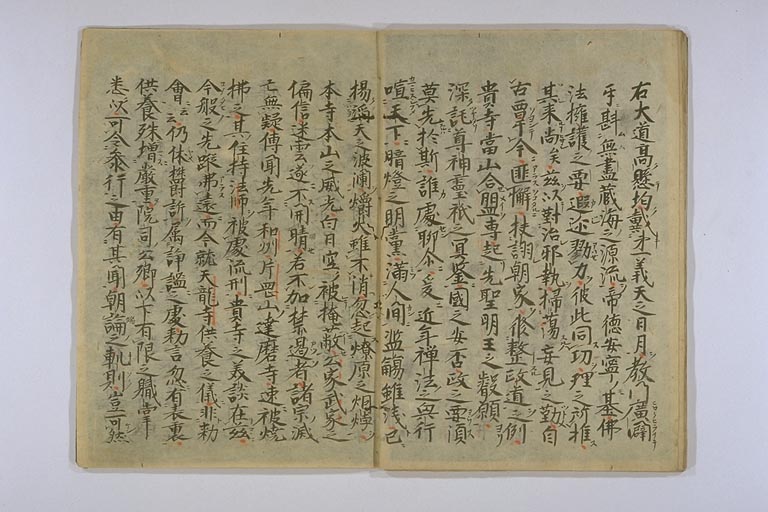 右大道高懸均戴第一義天之日月教門廣闢
斟無盡蔵海之源流帝徳安寧基佛
法擁護之要遐迩勠力彼此同功理之所推
其来尚矣茲以對治邪執掃蕩妄見之勤自
古覃于今匪懈扶翊朝家修整政道之例
貴寺當山合盟専起先聖明王之叡願
深託尊神霊祇之冥鑒國之安否政之要須
莫先於斯誰處聊尒哉近年禅法之興行
喧天下暗燈之明黨満人間濫觴雖浅已
揚滔天之波瀾爝火雖不消忽起燎原之烟焔
本寺本山之威光白日空被掩蔽公家武家之
偏信迷雲遂不開晴若不加禁遏者諸宗滅
亡無疑傳聞先年和州片岡山達磨寺速被焼
拂之其住持法師被處流刑貴寺之美談在茲
今般之先蹤弗遠而今就天龍寺供養之儀非勅
會云云仍休欝訴属静謐之處勅言忽有表裏
供養殊増厳重院司公卿以下有限之職掌
悉以可令参行之由有其聞朝論之軌則豈可然